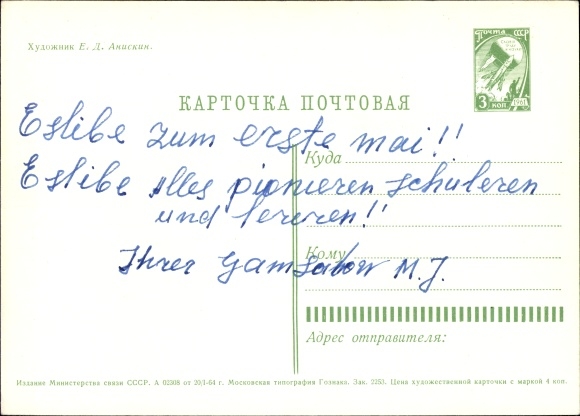 Художник Е. Д. Анискин.
ПОЧТА СССР
3 КОП
1961
КАРТОЧКА ПОЧТОВАЯ
Eslibe zum erste mai!!
Куда
Eslibe alles pionieren schuleren
und lereren!!
Кому
Ihrer M. J.
Адрес отправителя:
Издание Министерства связи СССР. А 02308 от 20/I-64 г. Московская типография Гознако. Зак. 2253. Цена художественной карточки с маркой 4 коп.